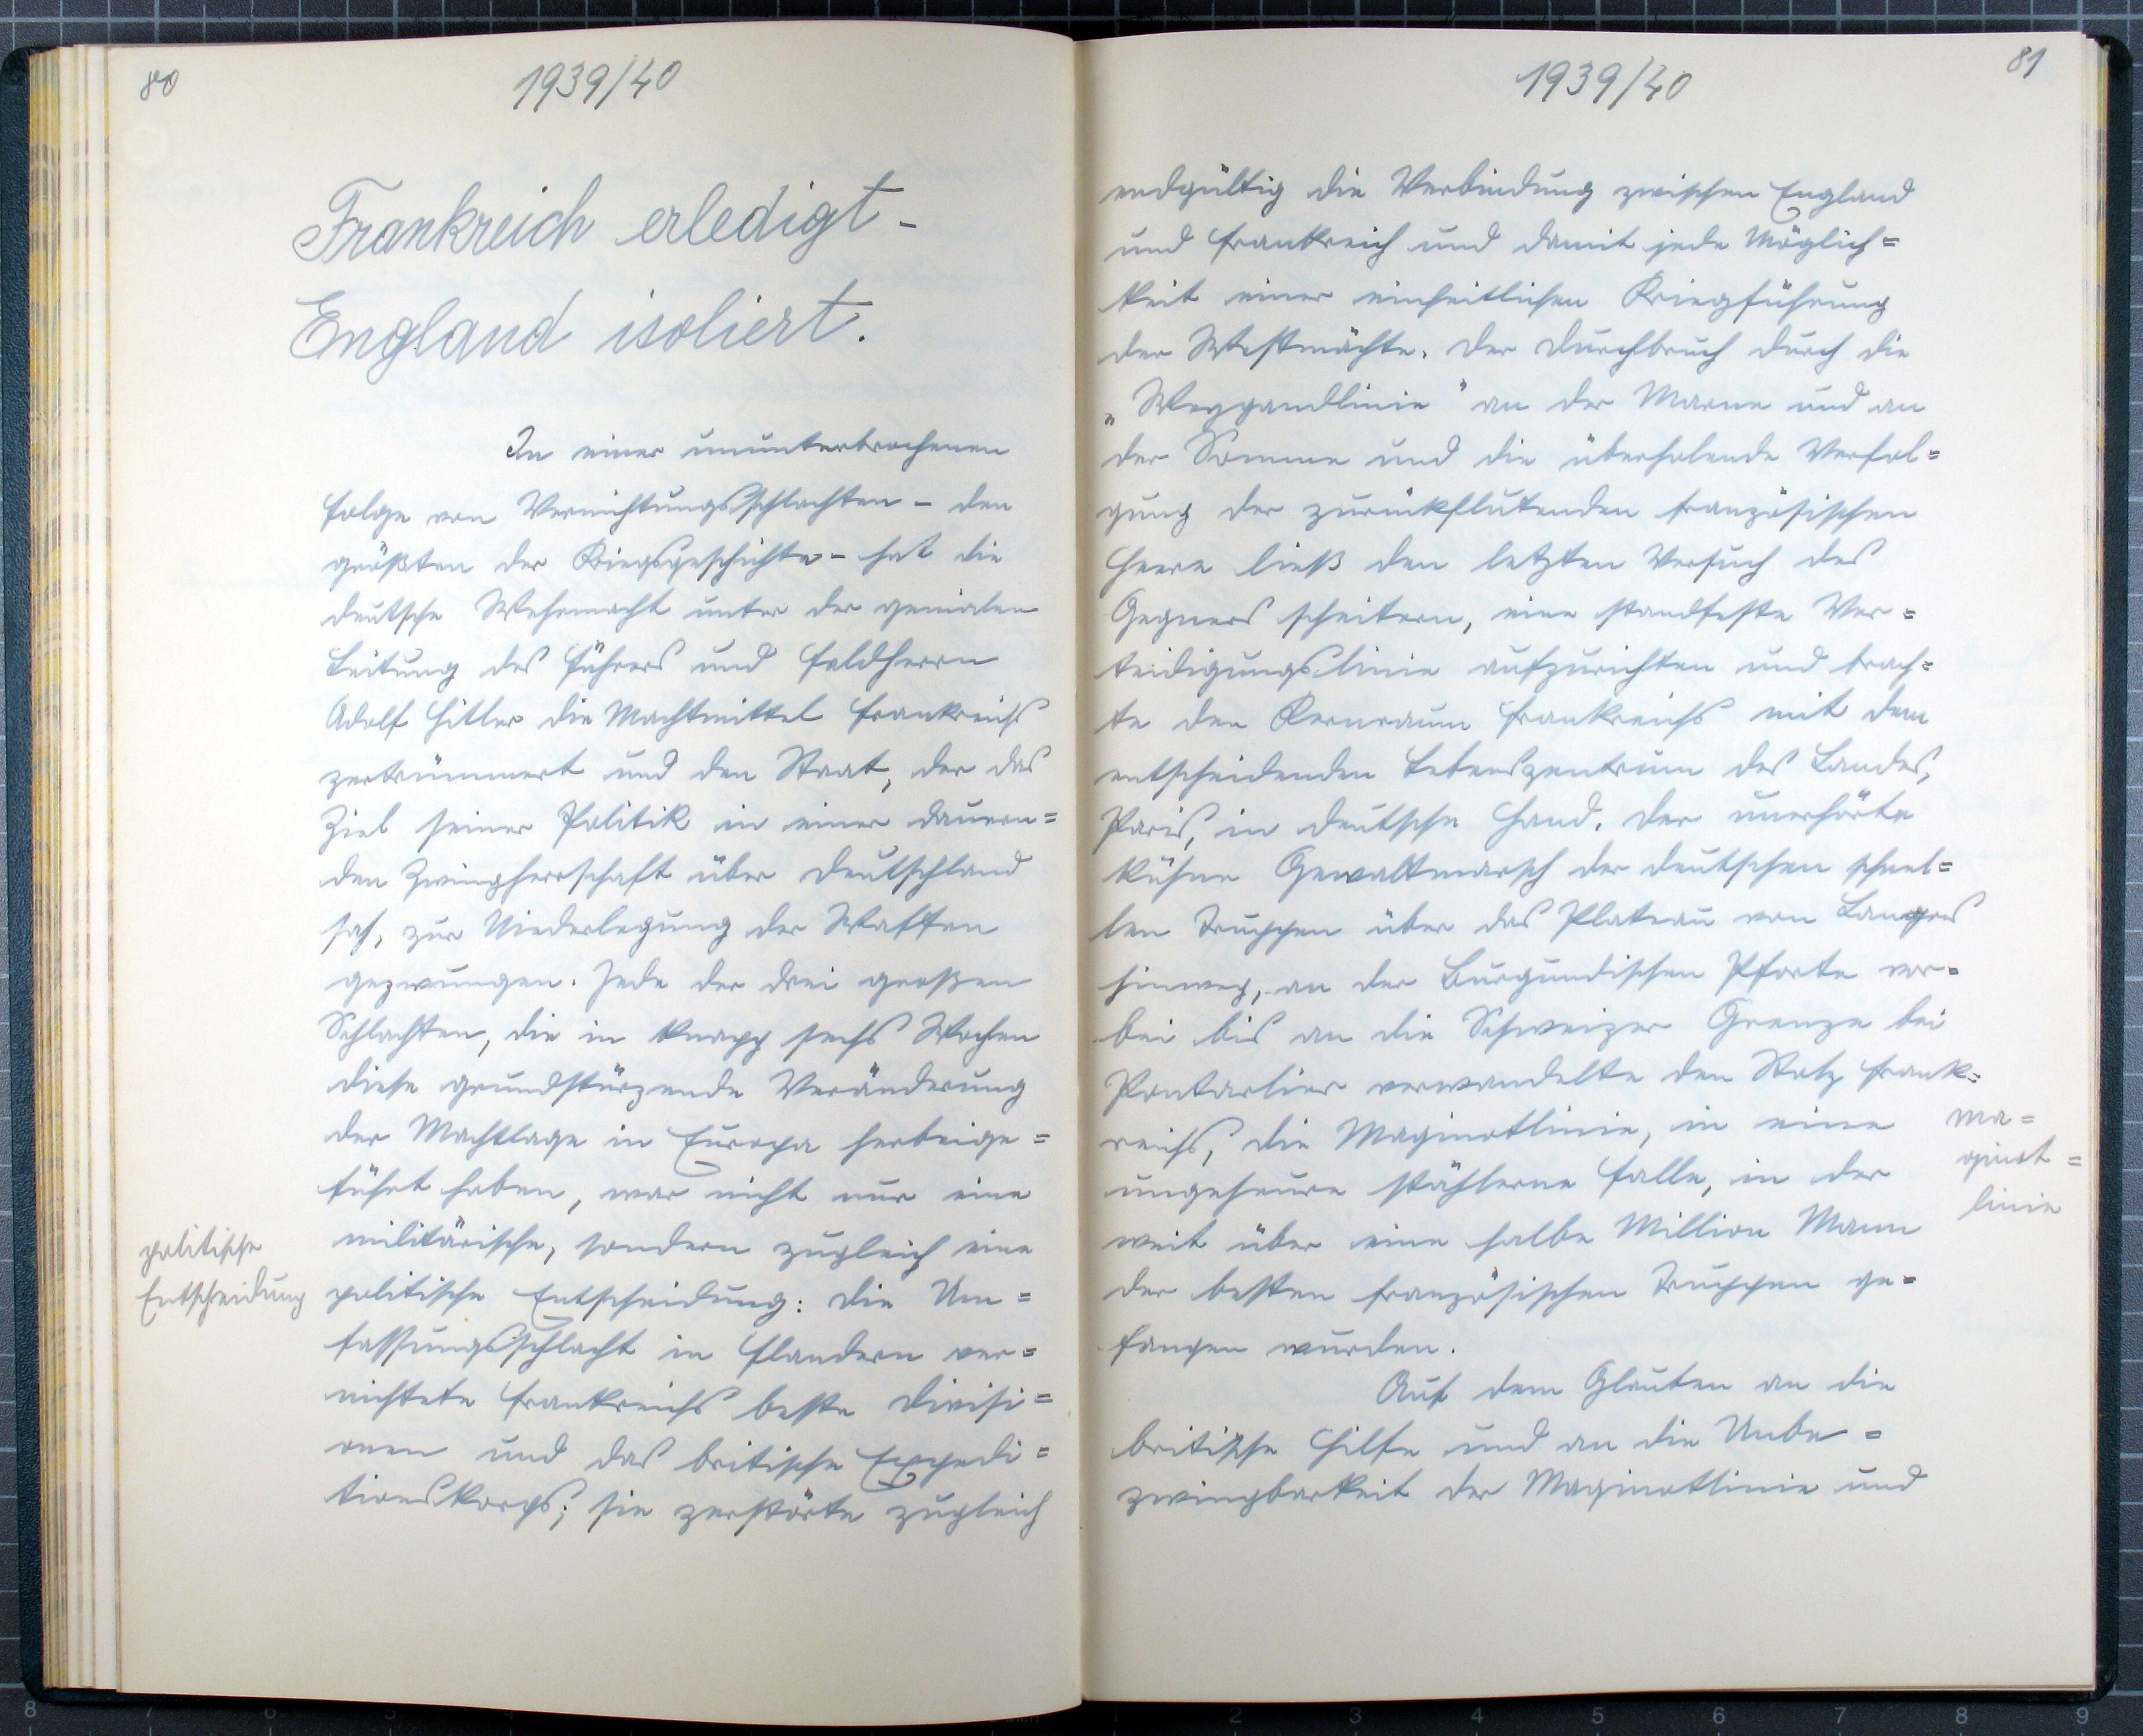 80
1939/40
Frankreich erledigt -
England isoliert.
In einer ununterbrochenen
Folge von Vernichtungsschlachten - den
größten der Kriegsgeschichte - hat die
deutsche Wehrmacht unter der genialen
Leitung des Führers und Feldherrn
Adolf Hitler die Machtmittel Frankreichs
zertrümmert und den Staat, der das
Ziel seiner Politik in einer dauern=
den Zwingherrschaft über Deutschland
sah, zur Niederlegung der Waffen
gezwungen. Jede der drei großen
Schlachten, die in knapp sechs Wochen
diese grundstürzende Veränderung
der Machtlage in Europa herbeige=
führt haben, war nicht nur eine
militärische, sondern zugleich eine
politische
Entscheidung
politische Entscheidung: die Um=
fassungsschlacht in Flandern ver=
nichtete Frankreichs beste Divisi=
onen und das britische Expedi=
tionskorps; sie zerstörte zugleich
81
1939/40
endgültig die Verbindung zwischen England
und Frankreich und damit jede Möglich=
keit einer einheitlichen Kriegführung
der Westmächte. Der Durchbruch durch die
„Weygandlinie" an der Marne und an
der Somme und die überholende Verfol=
gung der zurückflutenden französischen
Heere ließ den letzten Versuch des
Gegners scheitern, eine standfeste Ver=
teidigungslinie aufzurichten und brach=
te den Kernraum Frankreichs mit dem
entscheidenden Lebenszentrum des Landes,
Paris, in deutsche Hand. Der unerhörte
kühne Gewaltmarsch der deutschen schnel=
len Truppen über das Plateau von Langres
hinweg, an der Burgundischen Pforte vor=
bei bis an die Schweizer Grenze bei
Pontarlier verwandelte den Stolz Frank=
reichs, die Maginotlinie, in eine
ungeheure stählerne Falle, in der
weit über eine halbe Million Mann
der besten französischen Truppen ge=
fangen wurden.
Ma=
ginot=
linie
Auf dem Glauben an die
britische Hilfe und an die Unbe=
zwingbarkeit der Maginotlinie und